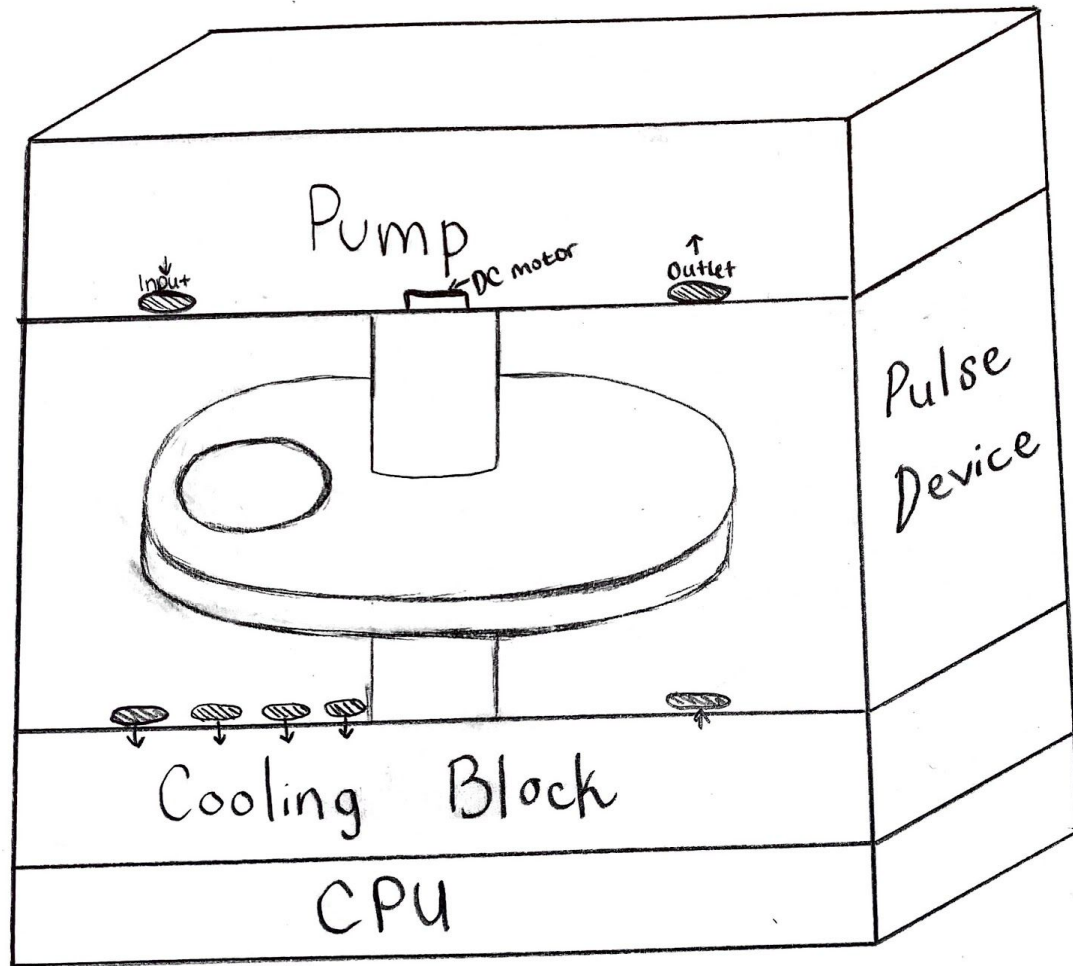 Pump
Input
DC motor
Outlet
Pulse
Device
Cooling Block
CPU